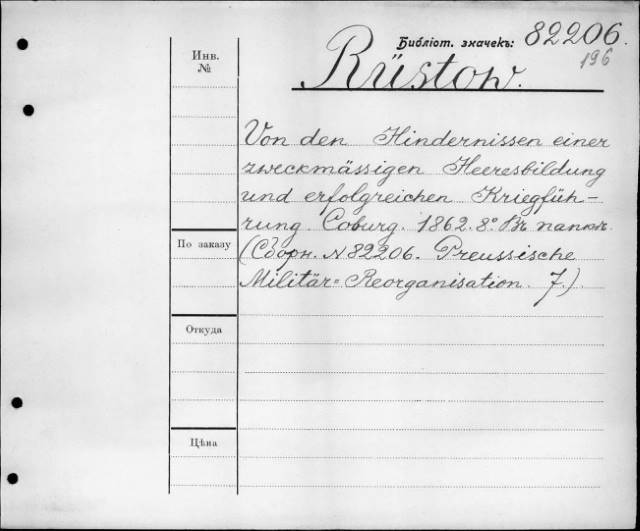 Библіот. значекъ: 82206.
196
Инв.
№
Rüstow.
Von den Hindernissen einer
zweckmässigen Heeresbildung
und erfolgreichen Kriegfüh-
rung. Coburg. 1862. 8° Въ папкѣ.
По заказу
(Сборн. N 82206. Preussische
Militär-Reorganisation. 7.)
Откуда
Цѣна